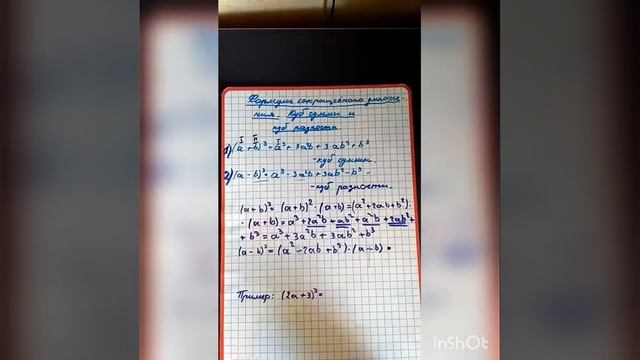 Формулы сокращенного умноже-
ния. Куб суммы и
куб разности
I II
1) (a + b)³ = a³ + 3a²b + 3ab² + b³
- куб суммы.
2) (a - b)³ = a³ - 3a²b + 3ab² - b³ -
- куб разности.
(a+b)³ = (a+b)² · (a+b) = (a² + 2ab + b²) ·
· (a+b) = a³ + 2a²b + ab² + a²b + 2ab² +
+ b³ = a³ + 3a²b + 3ab² + b³
(a-b)³ = (a² - 2ab + b²) · (a-b) =
Пример: (2a+3)³ =
InShOt